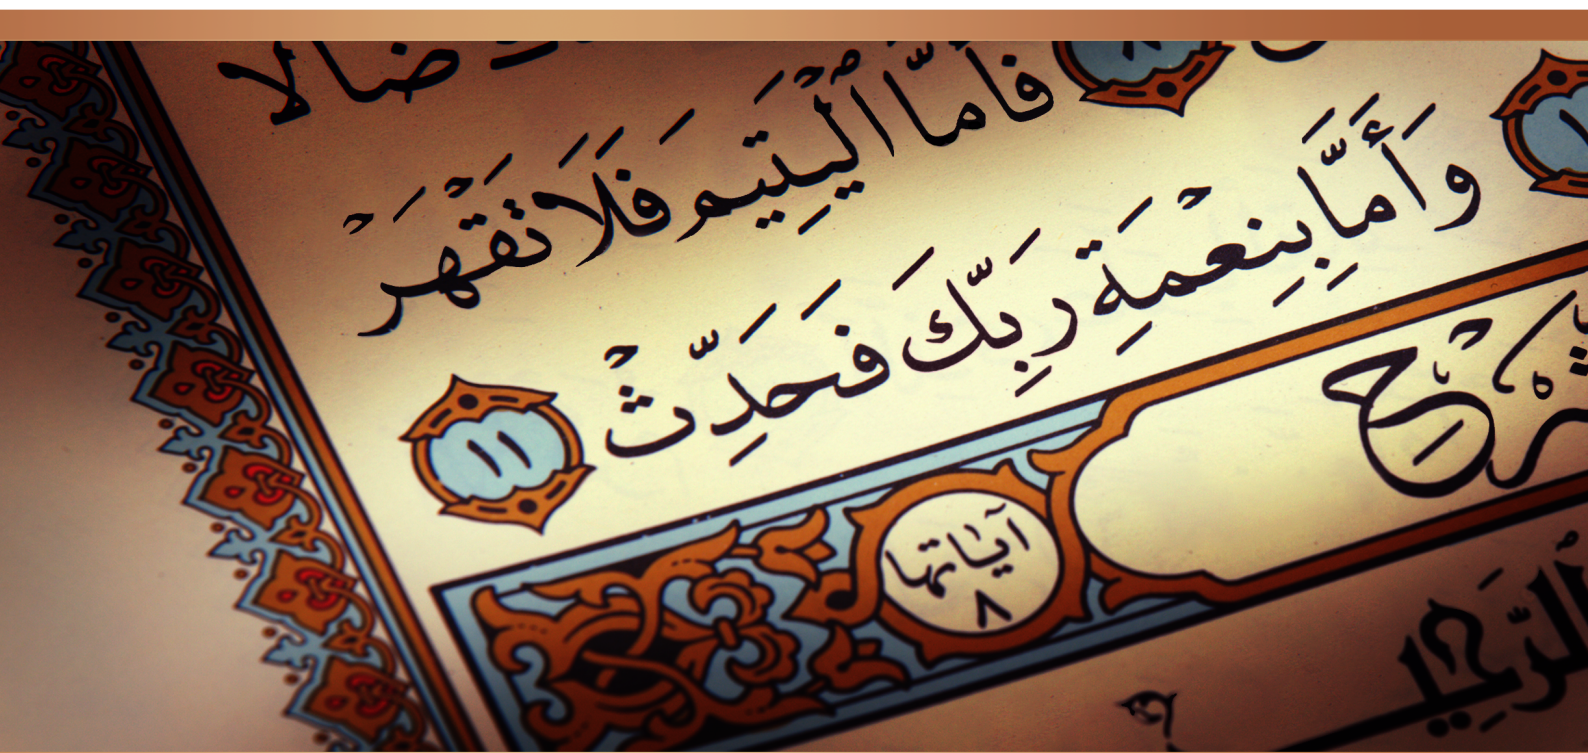 ضالا
٨ فَأَمَّا ٱلْيَتِيمَ فَلَا تَقْهَرْ
وَأَمَّا بِنِعْمَةِ رَبِّكَ فَحَدِّثْ ١١
آيَاتها
٨